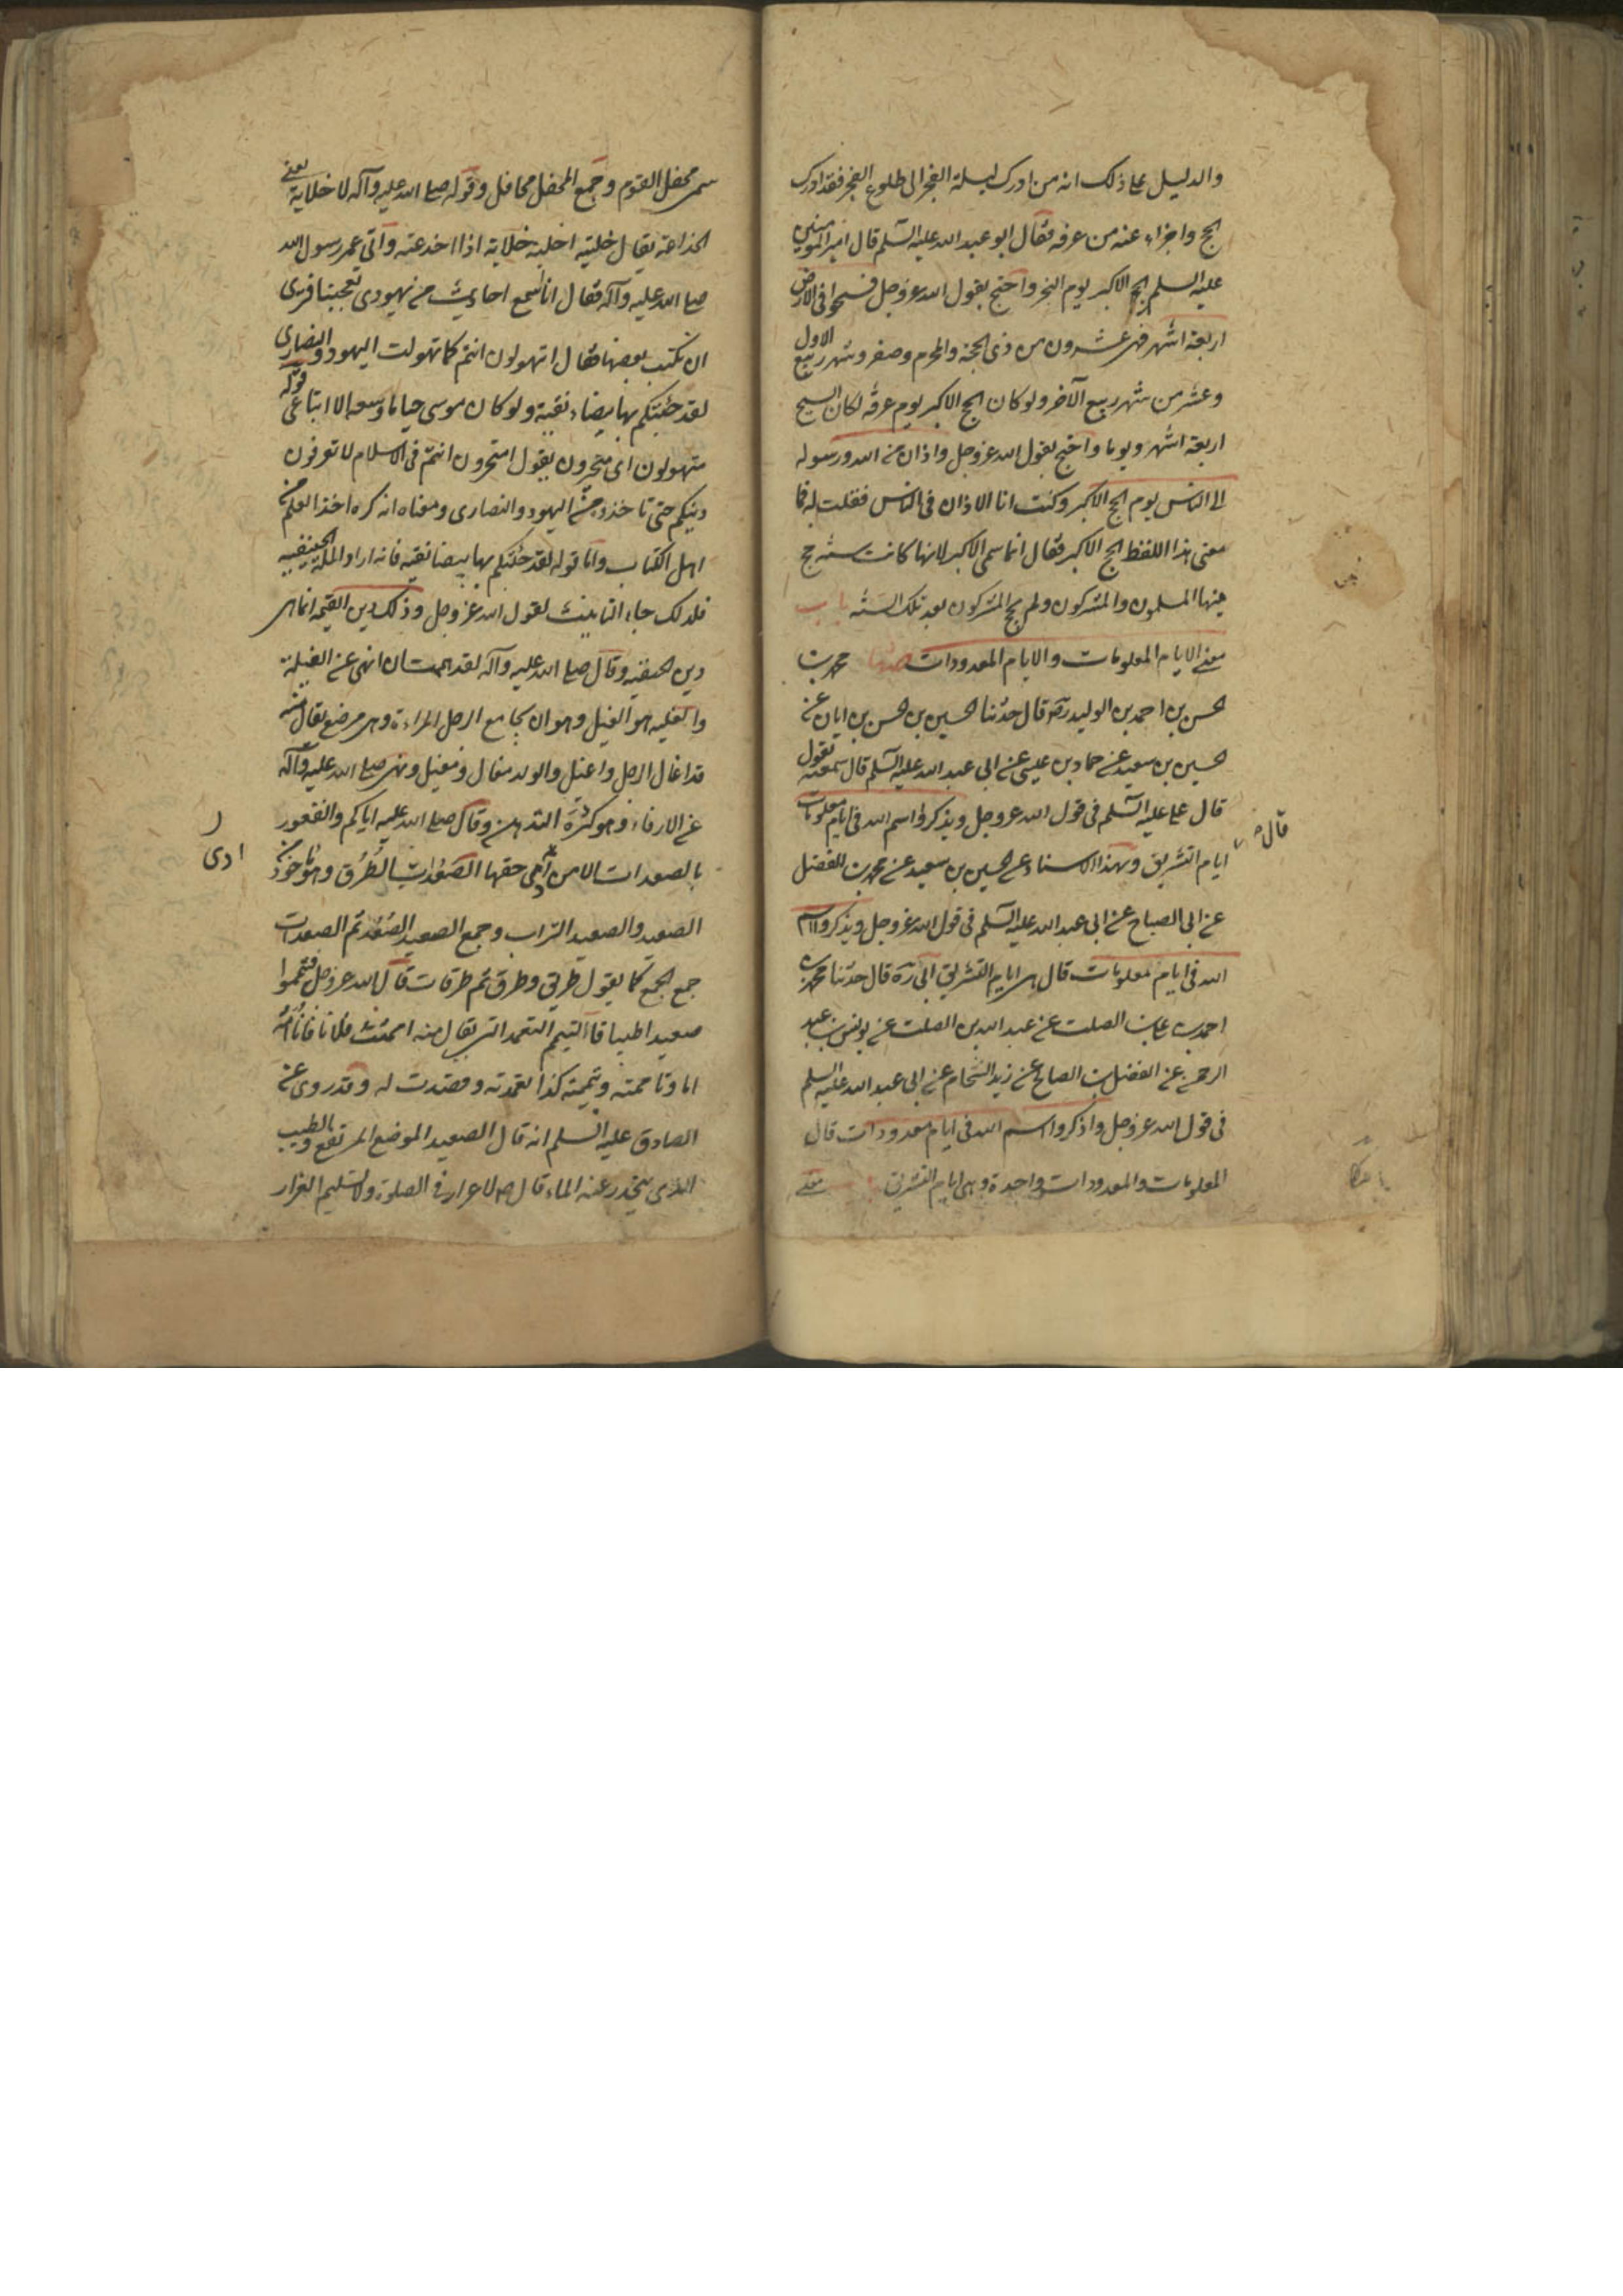 والدليل على ذلك انه من ادرك ليلة الفجر الى طلوع الفجر فقد ادرك
الحج واجزاء عنه من عرفه فقال ابو عبد الله عليه السلم قال امير المومنين
عليه السلم الحج الاكبر يوم النحر واحتج بقول الله عز وجل فسيحوا فى الارض
اربعة اشهر فهى عشرون من ذى الحجة والمحرم وصفر وشهر ربيع الاول
وعشر من شهر ربيع الآخر ولو كان الحج الاكبر يوم عرفه لكان السيح
اربعة اشهر ويوما واحتج بقول الله عز وجل واذان من الله ورسوله
الى الناس يوم الحج الاكبر وكنت انا الاذان فى الناس فقلت له فما
معنى هذا اللفظ الحج الاكبر فقال انما سمى الاكبر لانها كانت سنة حج
فيها المسلمون والمشركون ولم يحج المشركون بعد تلك السنة باب
معنى الايام المعلومات والايام المعدودات حدثنا محمد بن
الحسن بن احمد بن الوليد ره قال حدثنا الحسين بن الحسن بن ابان عن
الحسين بن سعيد عن حماد بن عيسى عن ابى عبد الله عليه السلم قال سمعته يقول
قال على عليه السلم فى قول الله عز وجل ويذكروا اسم الله فى ايام معلومات
قال
ايام التشريق وبهذا الاسناد عن الحسين بن سعيد عن محمد بن الفضل
عن ابى الصباح عن ابى عبد الله عليه السلم فى قول الله عز وجل ويذكروا اسم
الله فى ايام معلومات قال هى ايام التشريق ابى ره قال حدثنا محمد بن
احمد بن على بن الصلت عن عبد الله بن الصلت عن يونس بن عبد
الرحمن عن المفضل بن الصالح عن زيد الشحام عن ابى عبد الله عليه السلم
فى قول الله عز وجل واذكروا اسم الله فى ايام معدودات قال
المعلومات والمعدودات واحدة وهى ايام التشريق معنى
سمى محفل القوم وجمع المحفل محافل وقوله صلى الله عليه وآله لا خلابة يعنى
الخداعة يقال خلبته اخلبه خلابة اذا اخدعته وآتى عمر رسول الله
صلى الله عليه وآله فقال انا نسمع احاديث من يهودى تعجبنا فترى
ان نكتب بعضها فقال اتهولون انتم كما تهولت اليهود والنصارى
لقد جئتكم بها بيضاء نقية ولو كان موسى حيا ما وسعه الا اتباعى قوله
متهولون اى متحيرون يقول امتحيرون انتم فى الاسلام لا تعرفون
دينكم حتى تاخذوه من اليهود والنصارى ومعناه انه كره اخذ العلم من
اهل الكتاب واما قوله لقد جئتكم بها بيضا نقيه فانه اراد الملة الحنيفية
فلذلك جاء التانيث لقول الله عز وجل وذلك دين القيمة انما هى
دين الحنيفيه وقال صلى الله عليه وآله لقد هممت ان انهى عن الغيلة
والغيله هو الغيل وهو ان يجامع الرجل المراءة وهى مرضع يقال منه
قد اغال الرجل واغيل والولد مغال ومغيل ونهى صلى الله عليه وآله
عن الارفاء وهو كثرة التدهن وقال صلى الله عليه اياكم والقعود
بالصعدات الا من ادى حقها الصعدات الطرق وهو ماخوذ من
ادى
الصعيد والصعيد التراب وجمع الصعيد الصعد ثم الصعدات
جمع الجمع كما يقول طريق وطرق ثم طرقات قال الله عز وجل فتيمموا
صعيدا طيبا فالتيمم التعمد للشى يقال منه اممت فلانا فانا اَؤُمُّه
اما وتاممته وتيممته كذا تعمدته وقصدت له وقد روى عن
الصادق عليه السلم انه قال الصعيد الموضع المرتفع والطيب
الذى ينحدر عنه الماء قال ص لا غرار فى الصلوة ولا تسليم الغرار